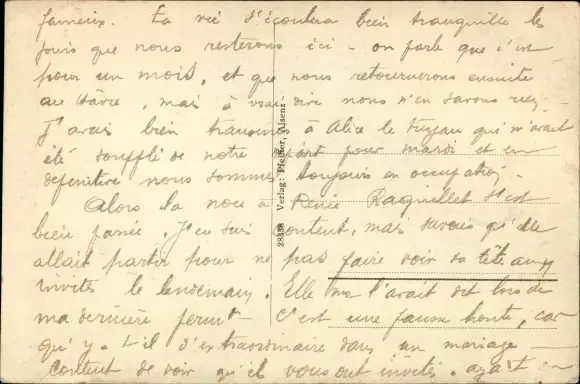 fameux. La vie s'écoulera bien tranquille les
jours que nous resterons ici - on parle que c'est
pour un mois, et que nous retournerons ensuite
au Hâvre, mais à vrai dire nous n'en savons rien -
J'avais bien transmis à Alice le tuyau qui m'avait
été soufflé de notre départ pour mardi et en
définitive nous sommes toujours en occupation -
Alors la noce à Renée Raquillet s'est
bien passée. J'en suis content, mais savais qu'elle
allait partir pour ne pas faire voir sa tête aux
invités le lendemain. Elle me l'avait dit lors de
ma dernière perm - C'est une fausse honte, car
qu'y a-t-il d'extraordinaire dans un mariage -
content de voir qu'ils vous ont invités. ayant en
28338 Verlag: Pfeiffer, Alsenz